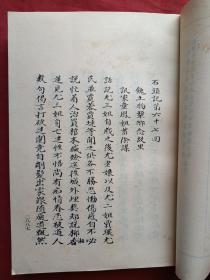 石頭記第六十七回
餽土物顰卿念故里
訊家童鳳姐蓄陰謀
話說尤三姐自戕之後尤老娘以及尤二姐賈璉尤
氏並賈蓉賈珍等聞之俱各不勝悲慟傷感自不必
說忙着人治買棺木盛殮送往城外埋葬却說柳湘
蓮見尤三姐身亡迷性不悟尚有痴情眷戀被道人
數句偈言打破迷關竟自削髮出家跟隨瘋道飄然